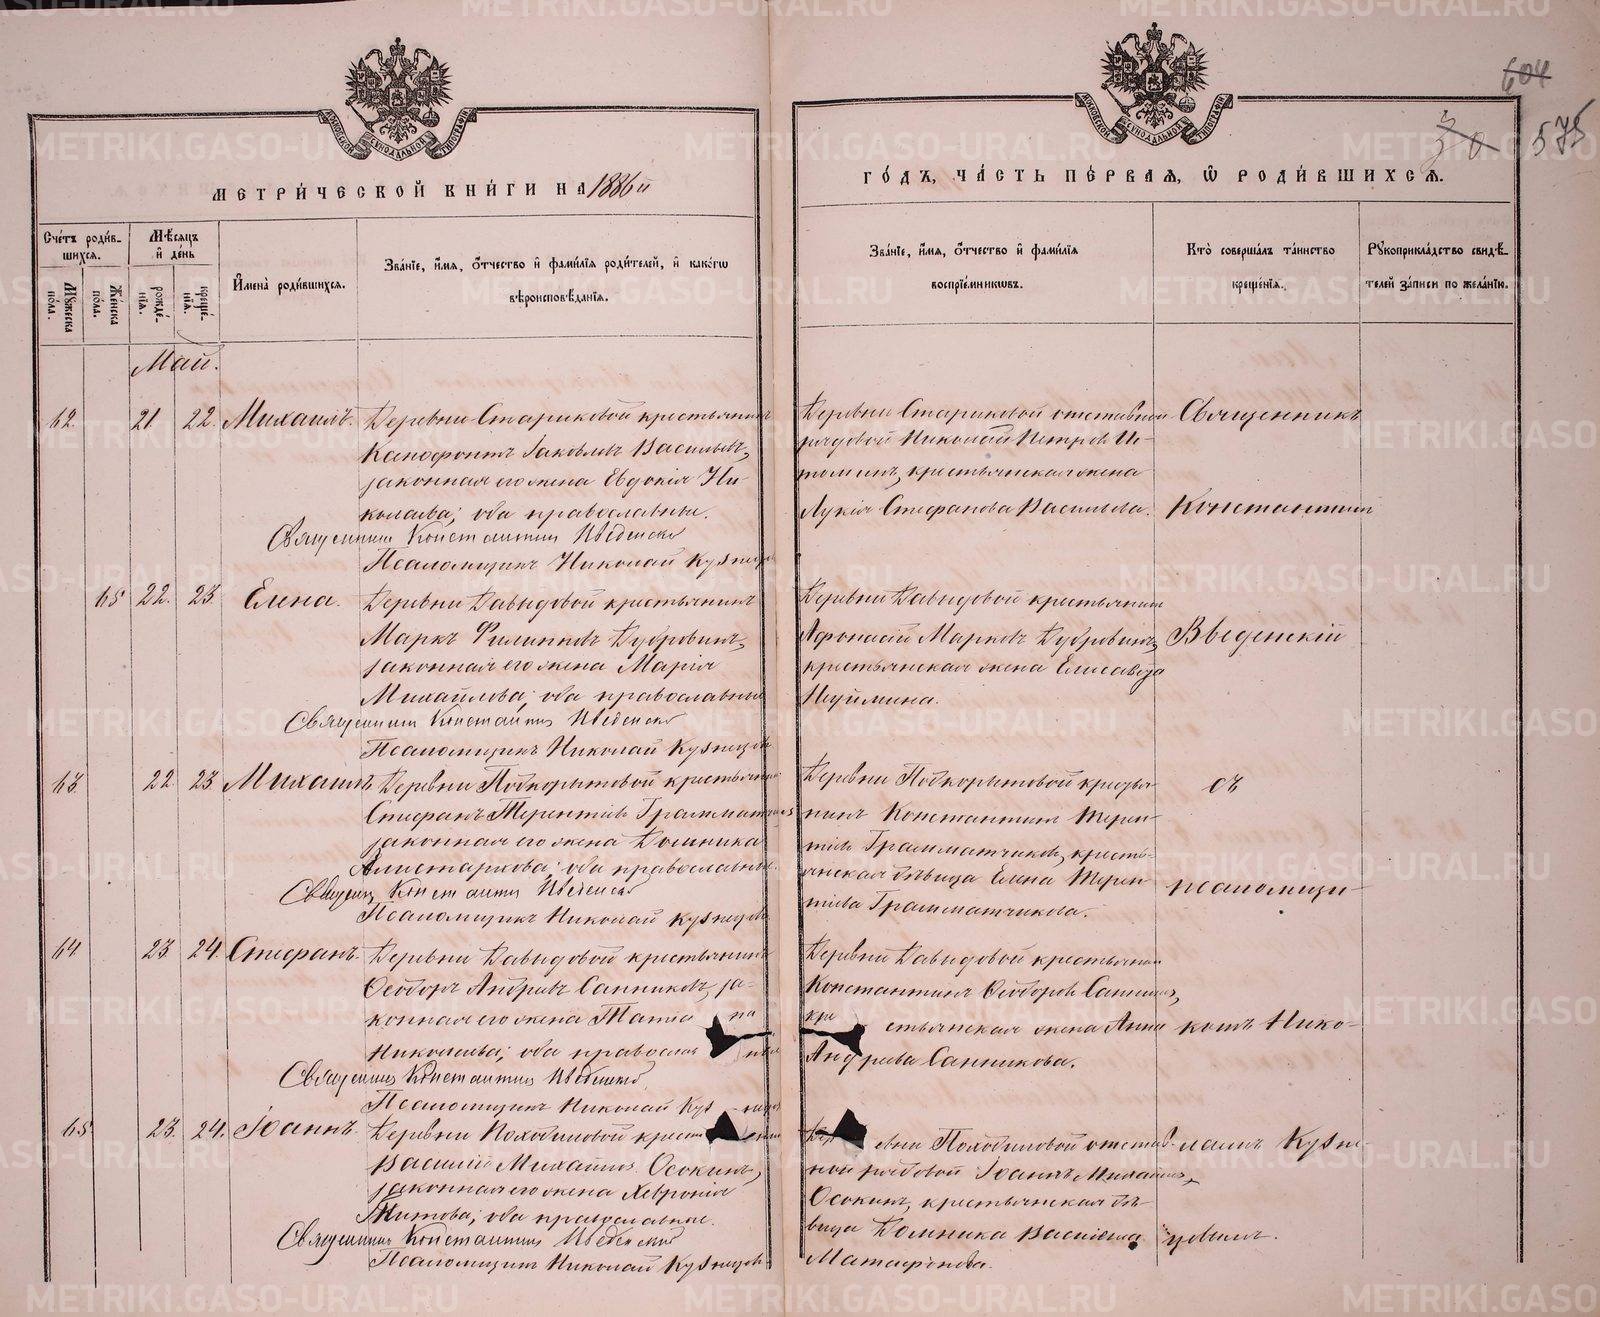 604
30
575
МЕТРИ́ЧЕСКОЙ КНИ́ГИ НА 1886й
ГО́ДЪ, ЧА́СТЬ ПЕ́РВАЯ, Ѡ РОДИ́ВШИХСЯ.
Сче́тъ роди́в-
шихся.
Му́жеска пола.
Же́нска по́ла.
Мѣ́сяцъ
и де́нь
рожде́-
нія.
креще́-
нія.
И́мена роди́вшихся.
Зва́ніе, и́мя, о́тчество и фами́лія роди́телей, и како́гѡ
вѣроисповѣ́данія.
Зва́ніе, и́мя, о́тчество и фами́лія
воспріе́мниковъ.
Кто̀ соверша́лъ та́инство
креще́нія.
Рукоприкла́дство свидѣ́-
телей за́писи по жела́нію.
Май.
62. 21. 22. Михаилъ.
Деревни Стариковой крестьянинъ
Ксенофонтъ Іаковлевъ Васильевъ,
законная его жена Евдокія Ни-
колаева; оба православные.
Священникъ Константинъ Введенскій
Псаломщикъ Николай Кузнецовъ
Деревни Стариковой отставной
рядовой Николай Петровъ Ис-
томинъ, крестьянская жена
Лукія Стефанова Васильева.
Священникъ
Константинъ
65 22. 23. Елена.
Деревни Давыдовой крестьянинъ
Маркъ Филипповъ Дубровинъ,
законная его жена Марія
Михайлова; оба православные
Священникъ Константинъ Введенскій
Псаломщикъ Николай Кузнецовъ
Деревни Давыдовой крестьянинъ
Афонасій Марковъ Дубровинъ,
крестьянская жена Елисавета
Неуймина.
Введенскій
63 22. 23. Михаилъ
Деревни Подкорытовой крестьянинъ
Стефанъ Терентіевъ Грамматчиковъ
законная его жена Домника
Аристархова; оба православные.
Священникъ Константинъ Введенскій
Псаломщикъ Николай Кузнецовъ
Деревни Подкорытовой крестья-
нинъ Константинъ Терен-
тіевъ Грамматчиковъ, кресть-
янская дѣвица Елена Терен-
тіева Грамматчикова.
съ
псаломщи-
64 23. 24. Стефанъ.
Деревни Давыдовой крестьянинъ
Ѳеодоръ Андреевъ Санниковъ, за-
конная его жена Татіа на
Николаева; оба православ ные
Священникъ Константинъ Введенскій
Псаломщикъ Николай Куз нецовъ
Деревни Давыдовой крестьянинъ
Константинъ Ѳеодоровъ Санниковъ,
кре стьянская жена Анна
Андреева Санникова.
комъ Нико-
65 23. 24. Іоаннъ.
Деревни Походиловой крест янинъ
Василій Михайловъ Осокинъ,
законная его жена Хевронія
Титова; оба православные.
Священникъ Константинъ Введенскій
Псаломщикъ Николай Кузнецовъ
Дер евни Походиловой отстав-
ной рядовой Іоаннъ Михайловъ
Осокинъ, крестьянская дѣ-
вица Домника Василіева
Матафонова.
лаемъ Кузне-
цовымъ.